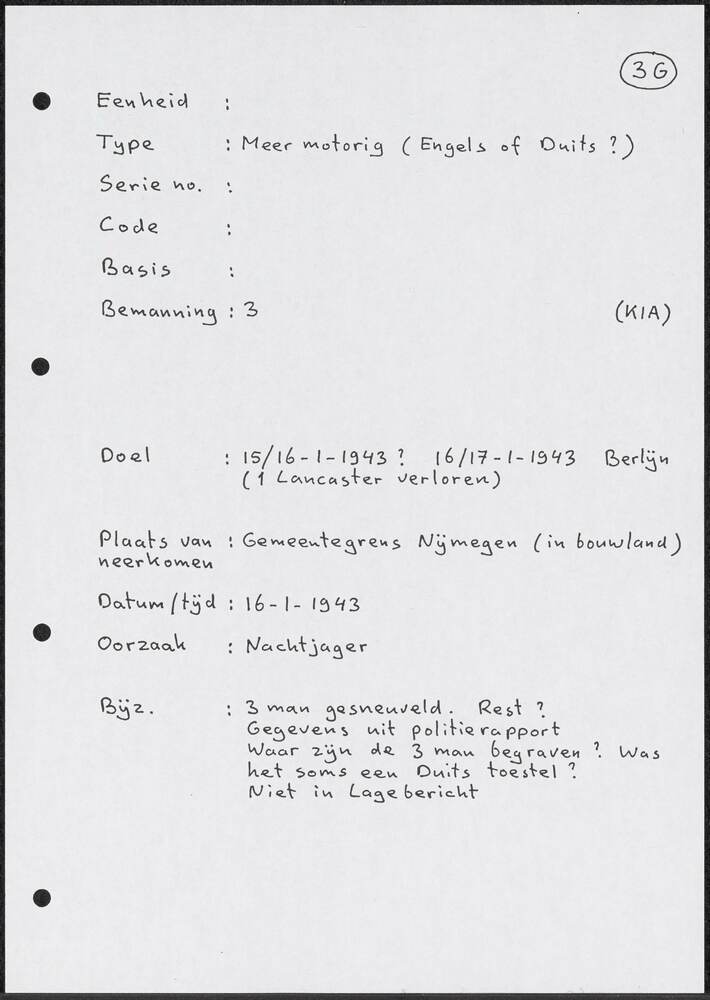 3G
Eenheid :
Type : Meer motorig (Engels of Duits ?)
Serie no. :
Code :
Basis :
Bemanning : 3 (KIA)
Doel : 15/16-1-1943 ? 16/17-1-1943 Berlijn
(1 Lancaster verloren)
Plaats van : Gemeentegrens Nijmegen (in bouwland)
neerkomen
Datum/tijd : 16-1-1943
Oorzaak : Nachtjager
Bijz. : 3 man gesneuveld. Rest ?
Gegevens uit politierapport
Waar zijn de 3 man begraven ? Was
het soms een Duits toestel ?
Niet in Lagebericht